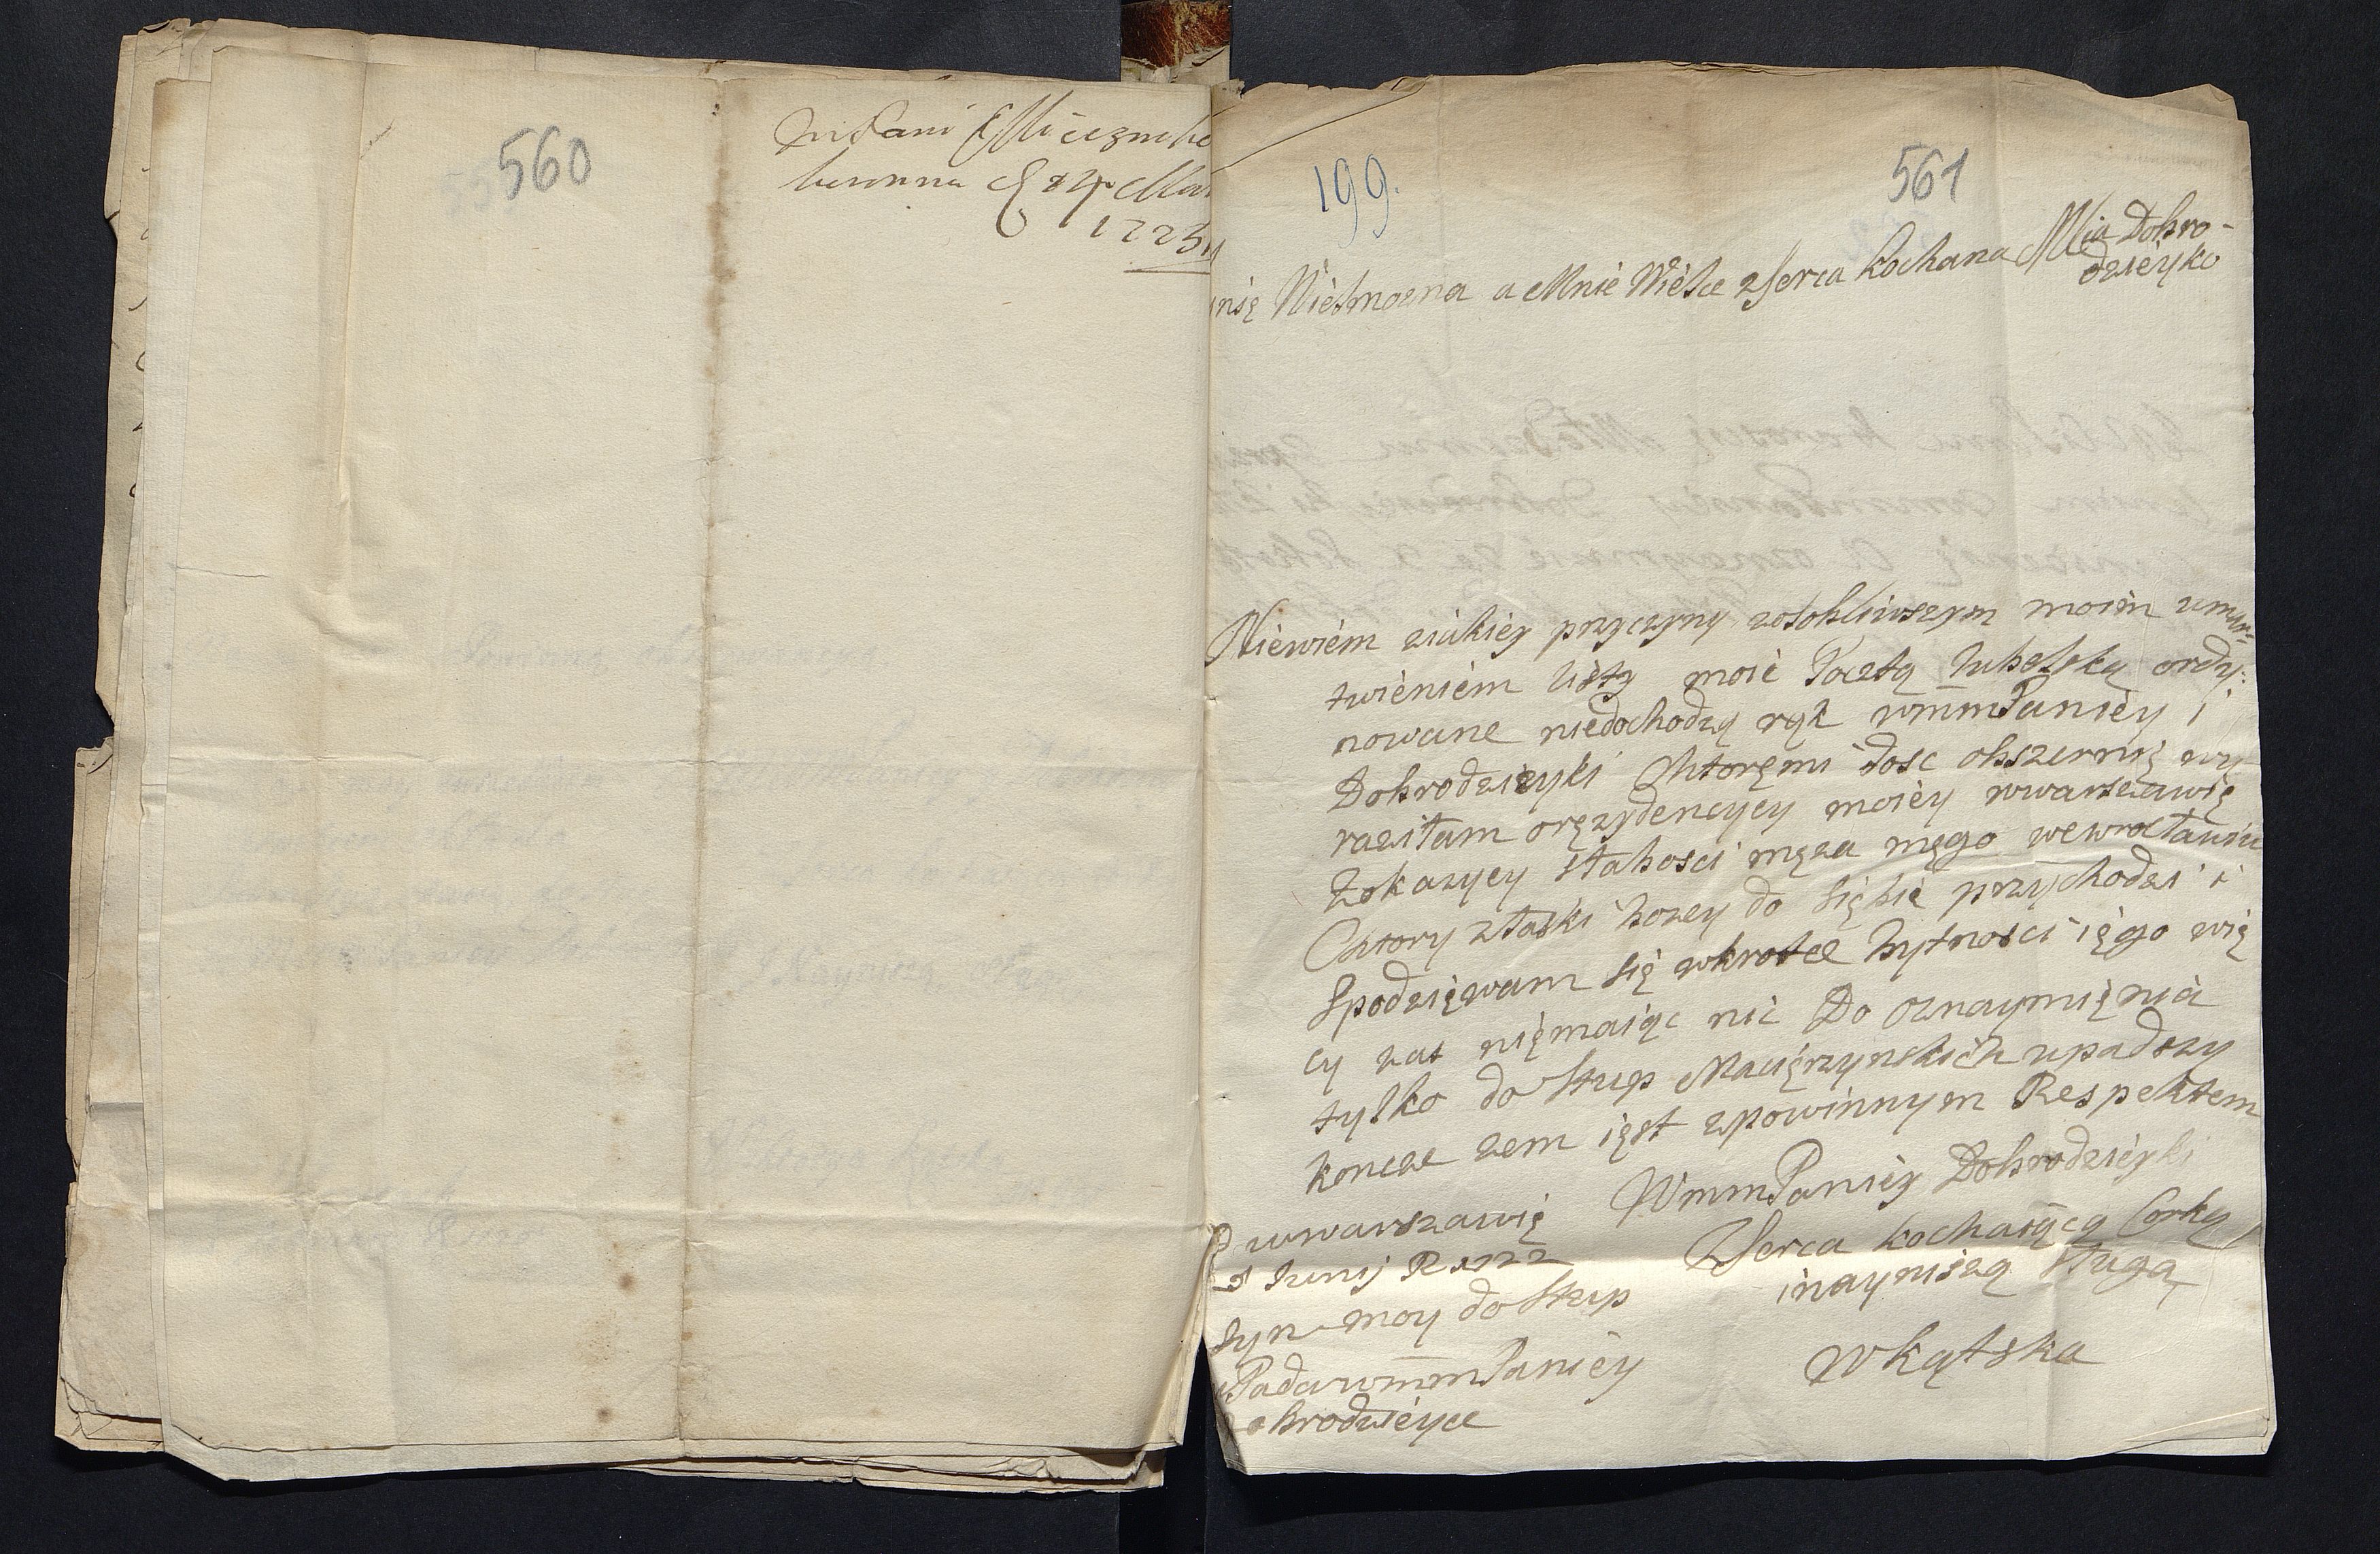 560
JmPani Mieczniko
koronna
1723
199.
561
Wielmozna a Mnie Wielce zserca kochana Mia Dobro-
dzieyko
Niewiem ziakiey przyczyny zosobliwszym moim umar-
twieniem listy moie Pocztą lubelską ordy-
nowane niedochodzą rąk wmmPaniey i
Dobrodzieyki Chtoręmi dosc obszernię wy
raziłam oręzydencyey moiey wwarszawię
zokazyey słabosci męza męgo wewrocławiu
Chtory złaski bozey do siębię przychodzi i
Spodzięwam się wkrotce bytnosci ięgo wię
cy zas nięmaiąc nic Do oznaymięnia
tylko do Stup Macięrzynskich upadszy
koncze zem ięst zpowinnym Respektem
WmmPaniey Dobrodzieyki
zserca kochaiącą Corką
inayniszą sługą
WKątska
wwarszawię
Junij R 1722
syn moy do Stup
Pada wmmPaniey
obrodzieyce